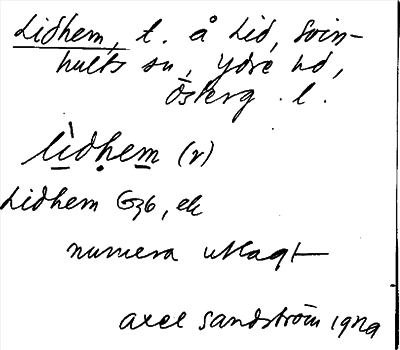 Lidhem, t. å Lid, Svin-
hults sn, Ydre hd,
Österg. l.
lìdhem (r)
Lidhem G36, ek
numera utlagt
Axel Sandström 1929